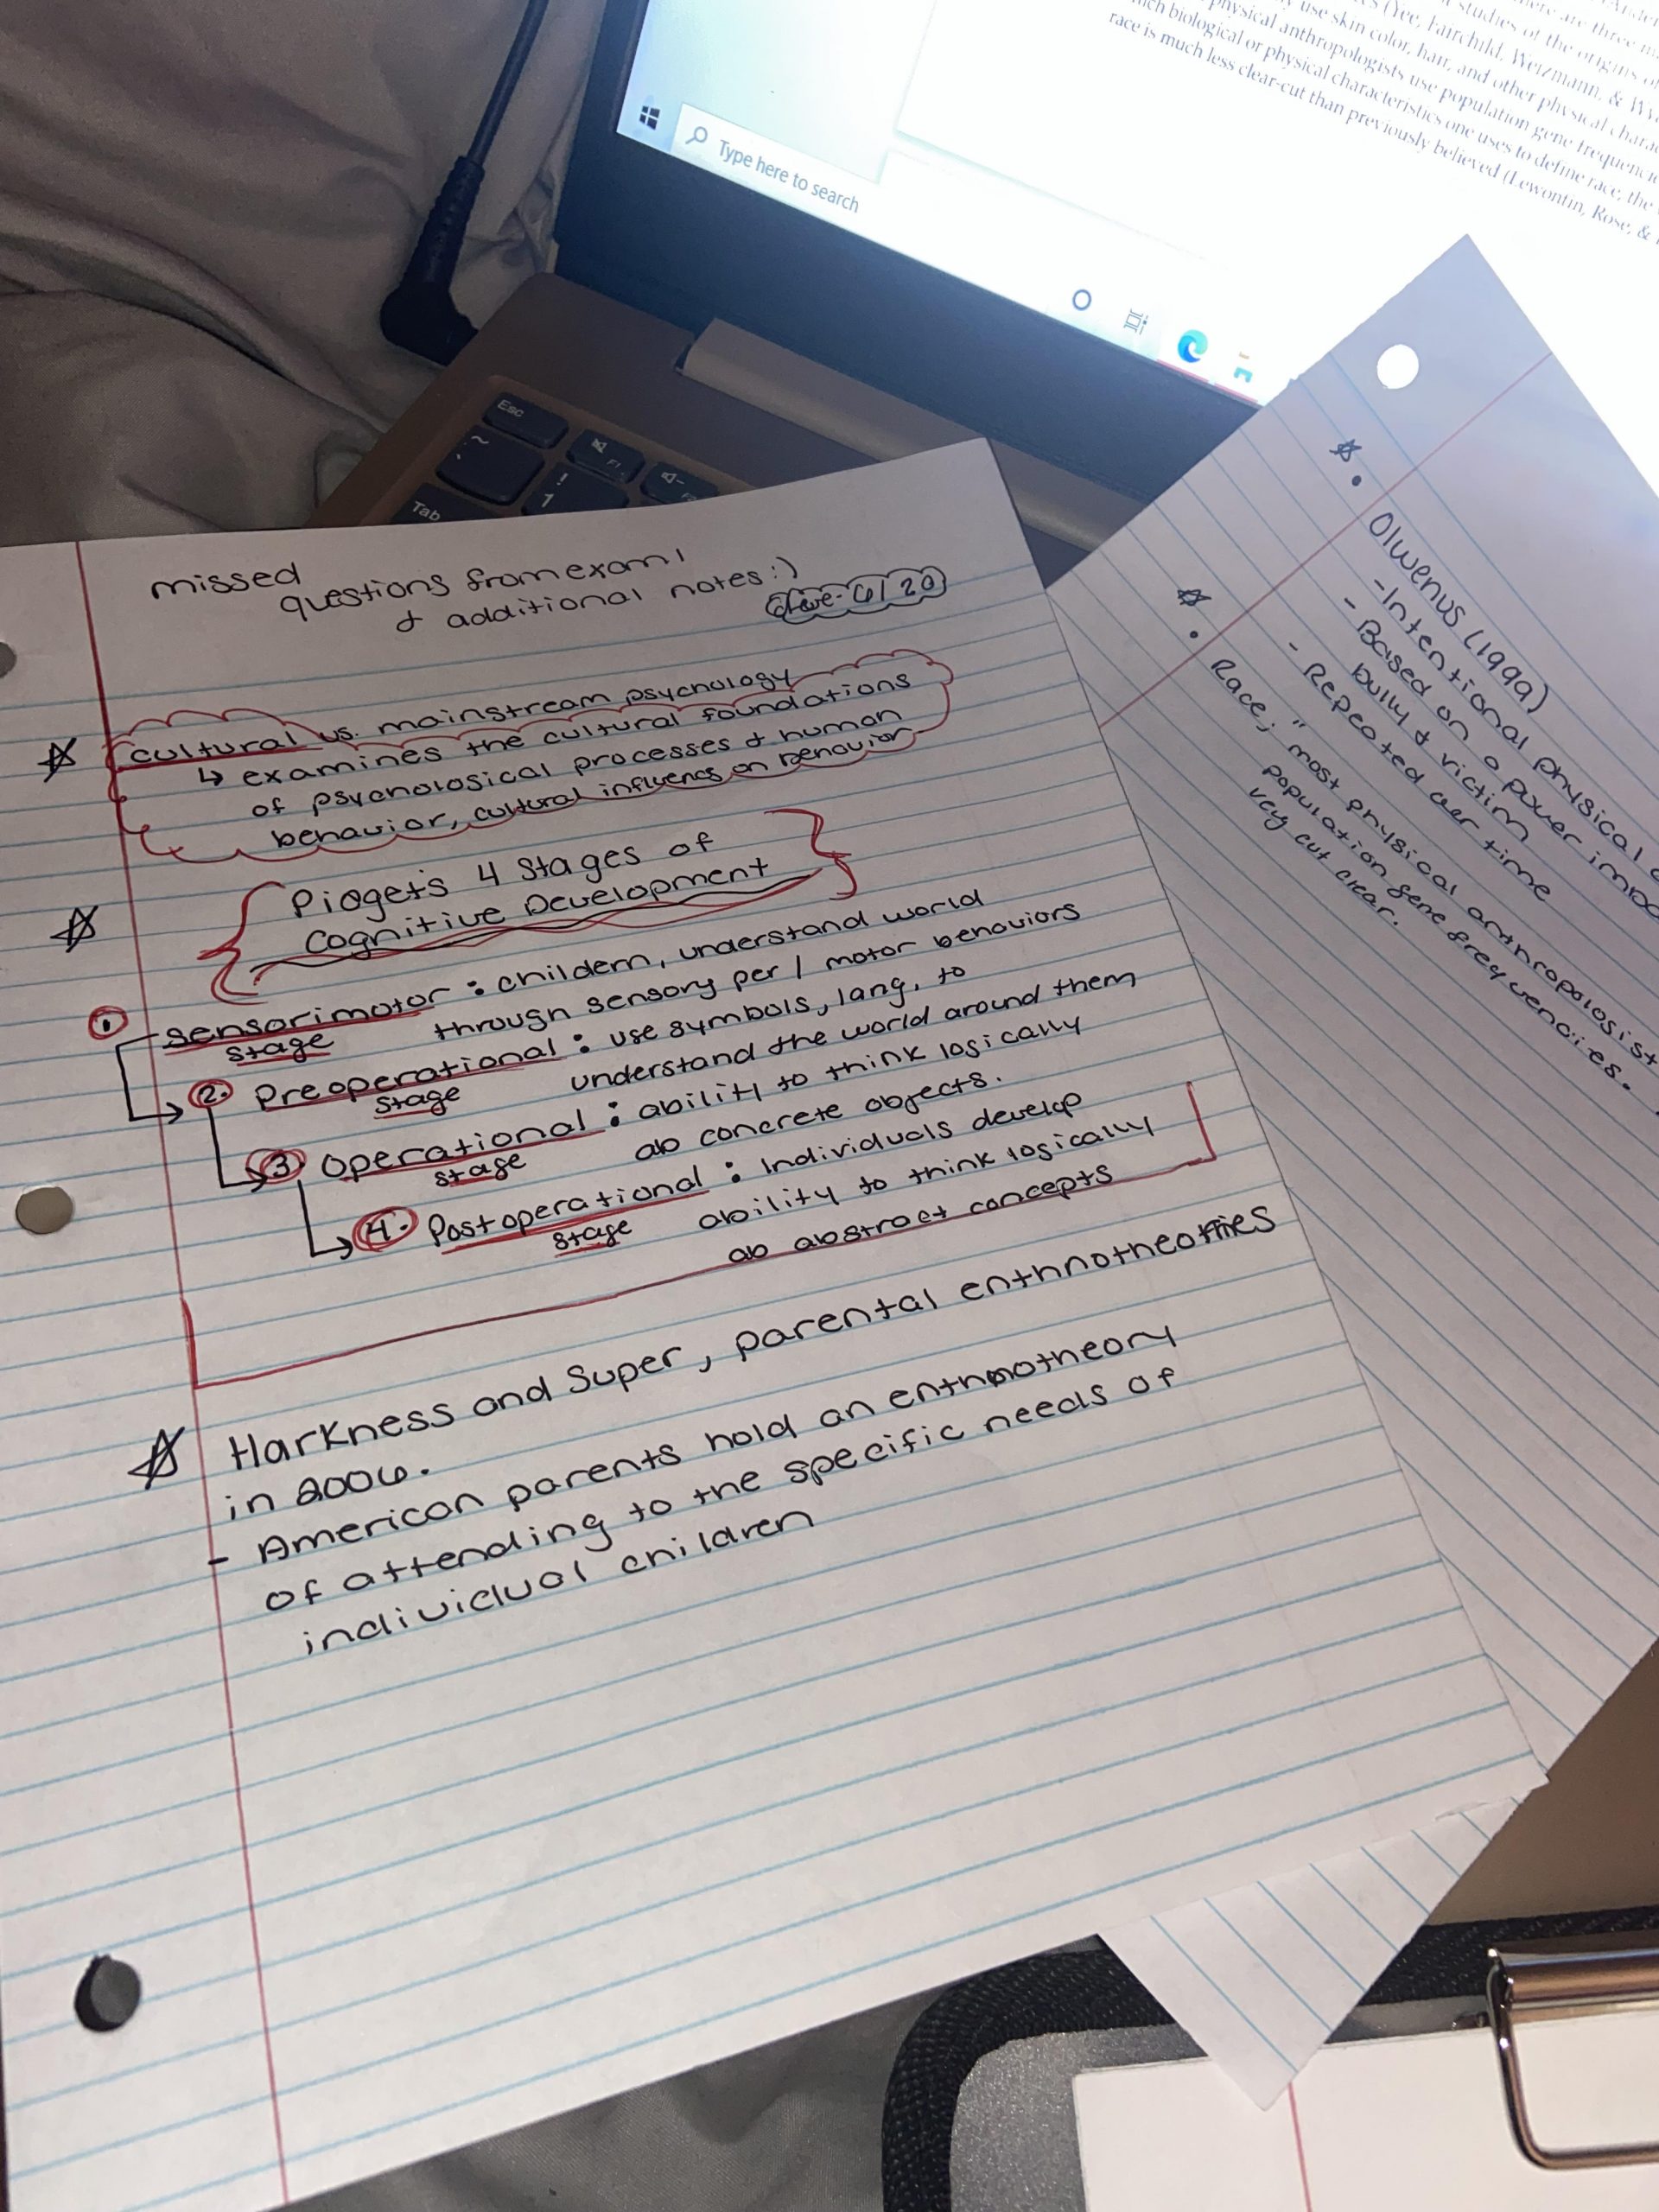 missed
questions from exam 1
& additional notes :)
cultural vs. mainstream psychology
↳ examines the cultural foundations
of psychological processes & human
behavior, cultural influencs on behavior
Piagets 4 Stages of
Cognitive Development
1 sensorimotor stage : childern, understand world
through sensory per / motor behaviors
2. Preoperational stage : use symbols, lang, to
understand the world around them
3. operational stage : ability to think logically
ab concrete objects.
4. Postoperational stage : Individuals develop
ability to think logically
ab abstract concepts
Harkness and Super, parental enthnotheories
in 2006.
- American parents hold an enthnotheory
of attending to the specific needs of
individual children
• Olwenus (1999)
- Intentional physical
- Based on a power
bully & victim
- Repeated over time
• Race; "most physical anthropologist
population gene frequencies.
very cut clear.
Type here to search
Esc
~
Tab
!
1
F1
(Yee, Fairchild, Weizmann, &
use skin color, hair, and other physical
physical anthropologists use population gene
biological or physical characteristics one uses to define race, the
race is much less clear-cut than previously believed (Lewontin, Rose, &